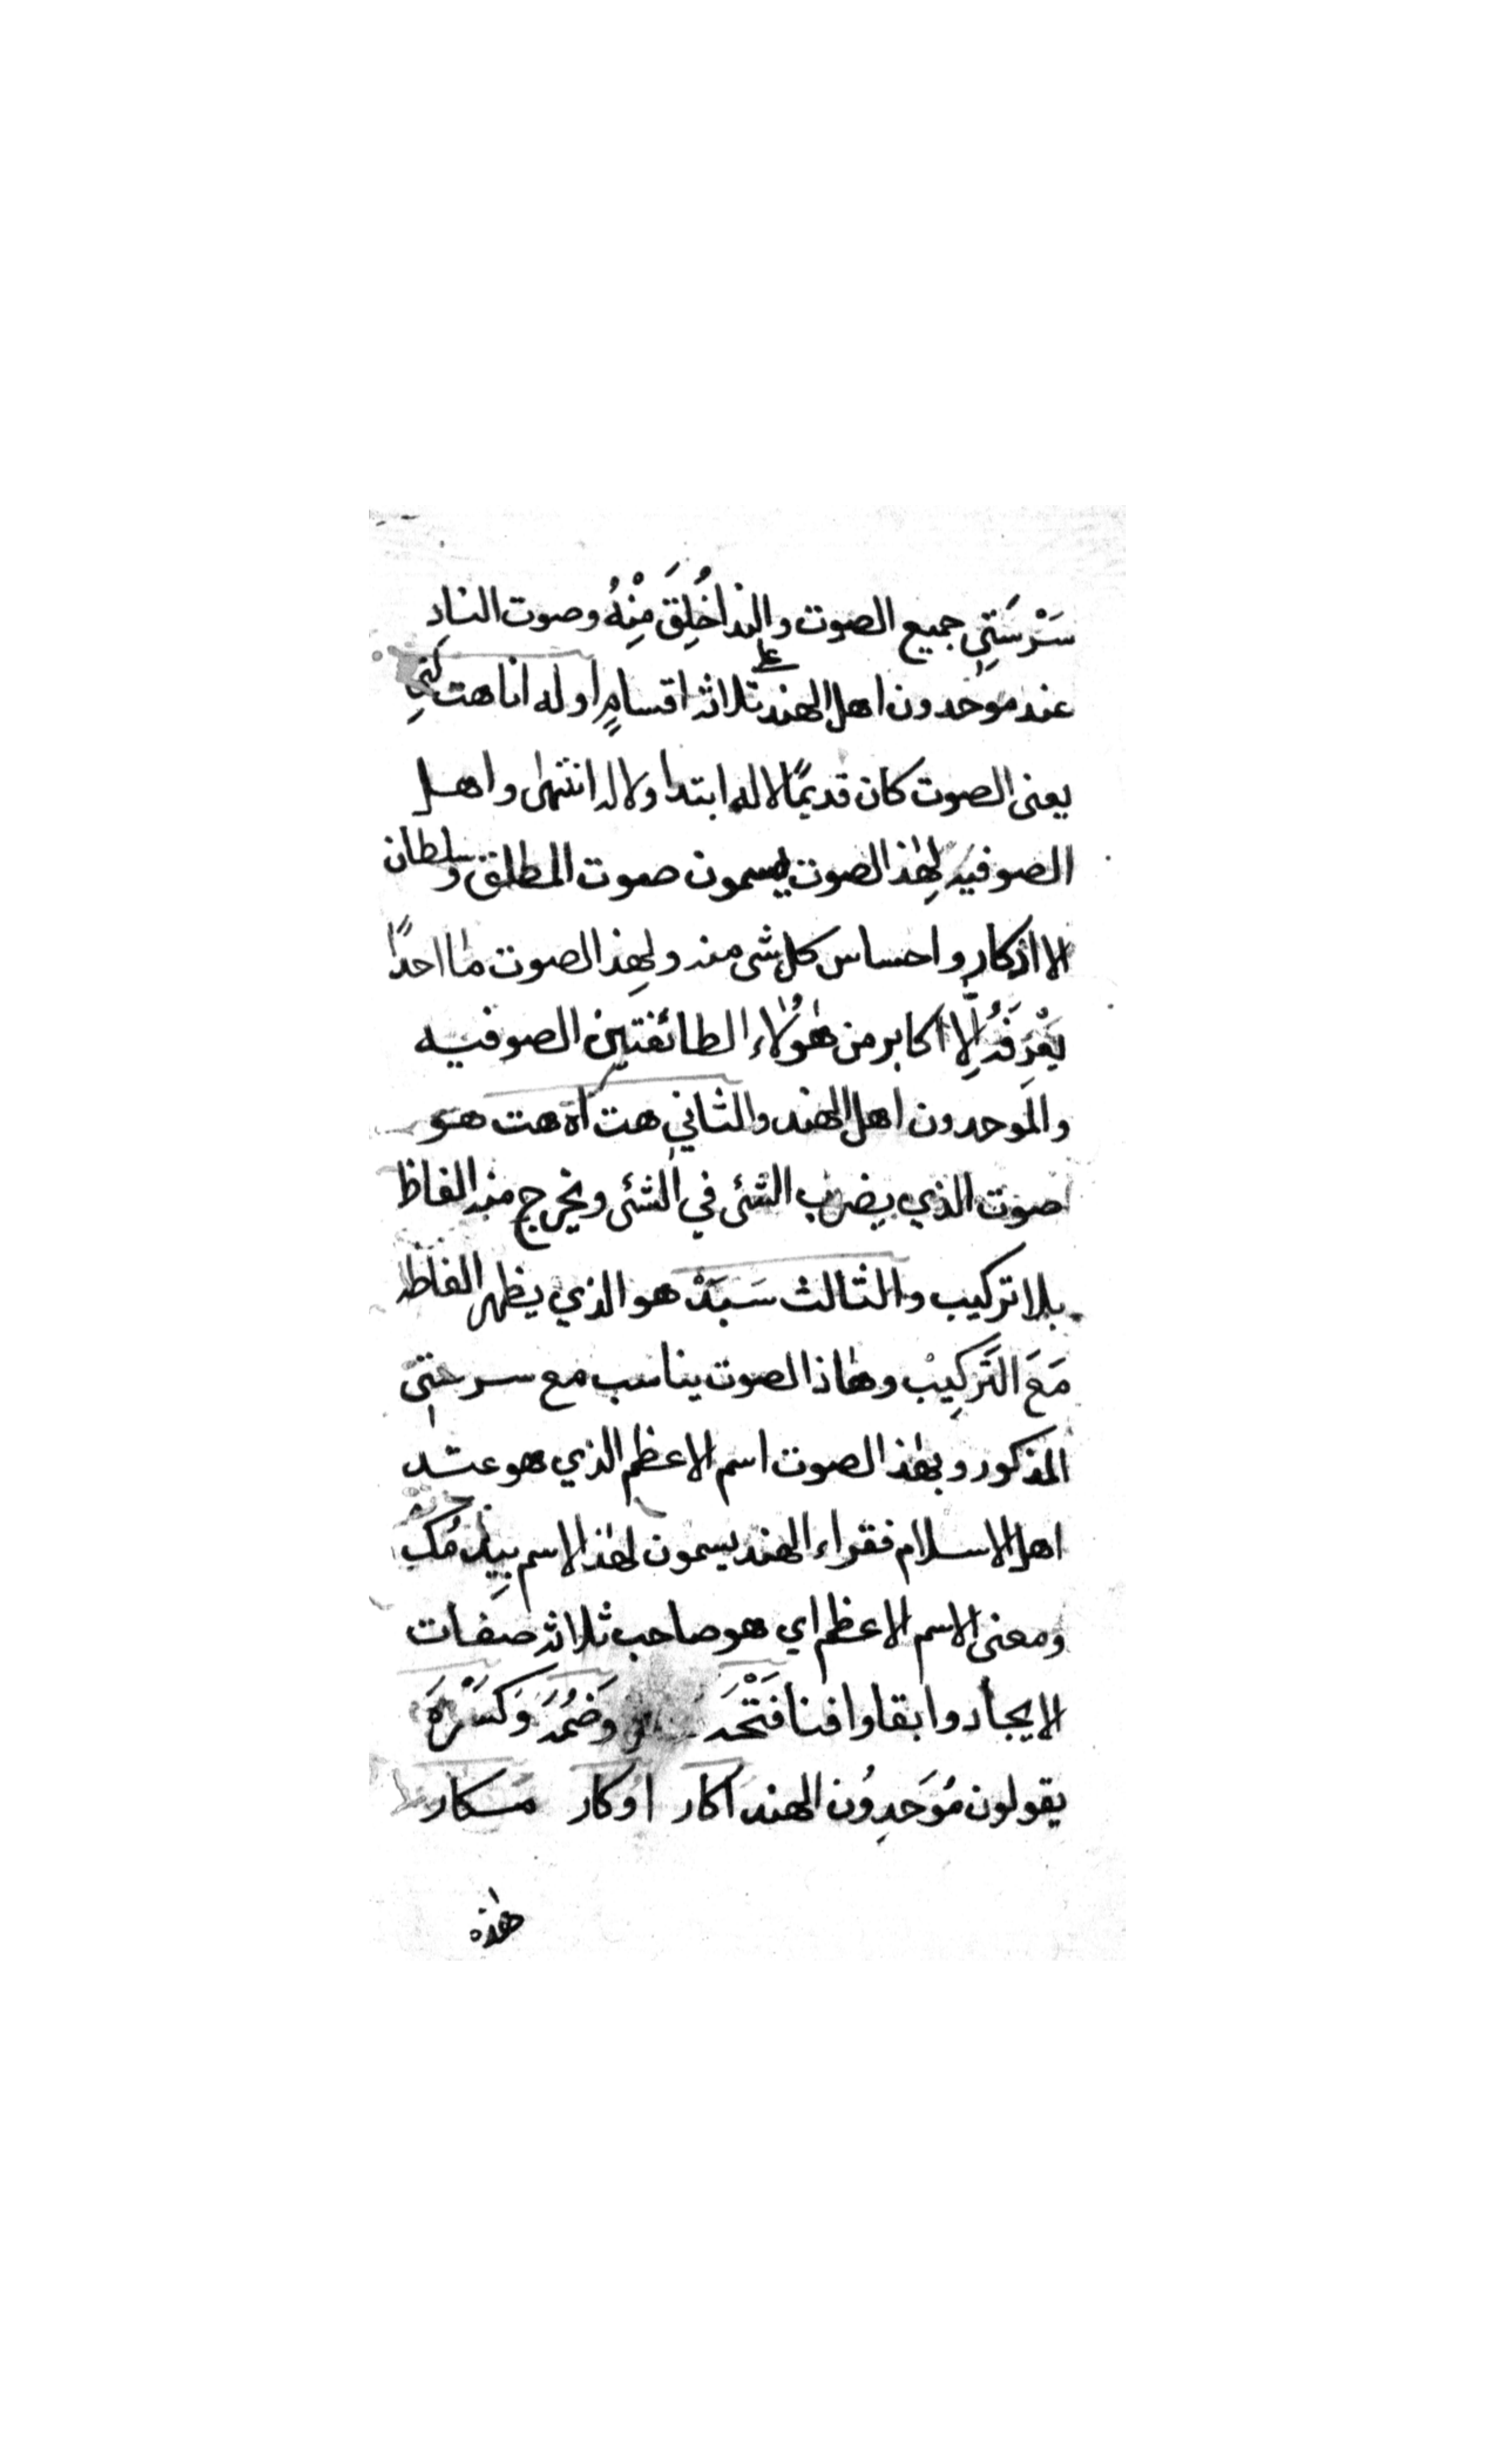 سَرْسَتِي جميع الصوت والندا خُلِقَ مِنْهُ وصوت الناد
عند موحدون اهل الهند على ثلاثة اقسامٍ اوله اناهت
يعنى الصوت كان قديمًا لا له ابتدا ولا له انتهى واهل
الصوفيه لِهٰذ الصوت يسمون صوت المطلق وسلطان
الا اذكار واحساس كل شى منه ولهذ الصوت ما احدًا
يَعْرَفُه اِلَّا اكابر من هٰؤلاء الطائفتين الصوفيه
والموحدون اهل الهند والثاني هت اهت هو
صوت الذي يضرب الشئ في الشئ ويخرج منه الفاظ
بلا تركيب والثالث سَبَدْ هو الذي يظهر الفاظه
مَعَ التَركِيبْ وهٰاذا الصوت يناسب مع سرستى
المذكور وبهٰذ الصوت اسم الاعظم الذي هو عند
اهل الاسلام فقراء الهند يسمون لهٰذ الاسم بِيد مُك
ومعنى الاسم الاعظم اي هو صاحب ثلاثة صفات
الايجاد وابقا وافنا فَتْحَه وَضُمَّه وَكَسْرَة
يقولون مُوَحِدوُن الهند اكار اوكار مكار
هٰذه